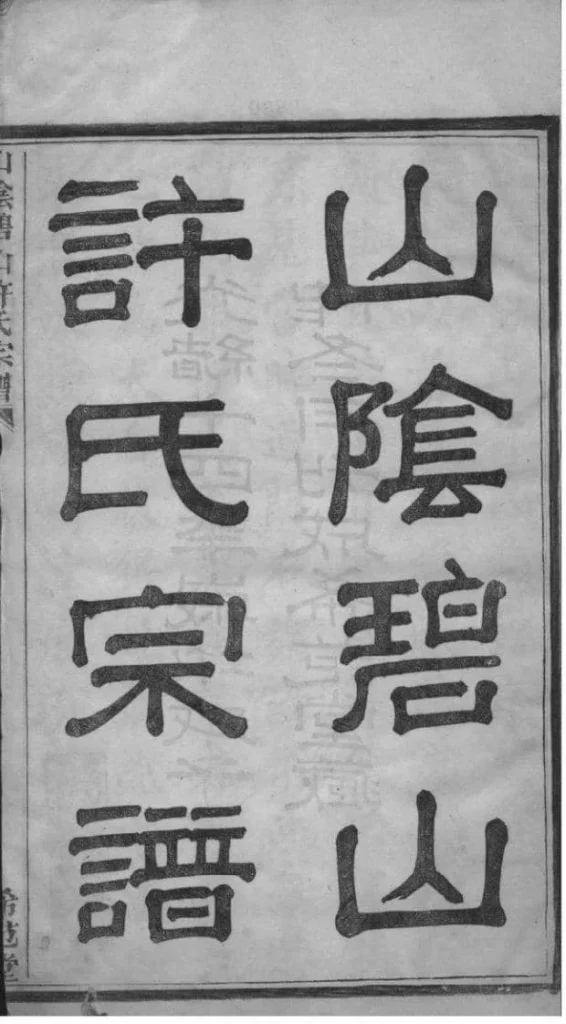 山陰碧山
許氏宗譜
山陰碧山許氏宗譜